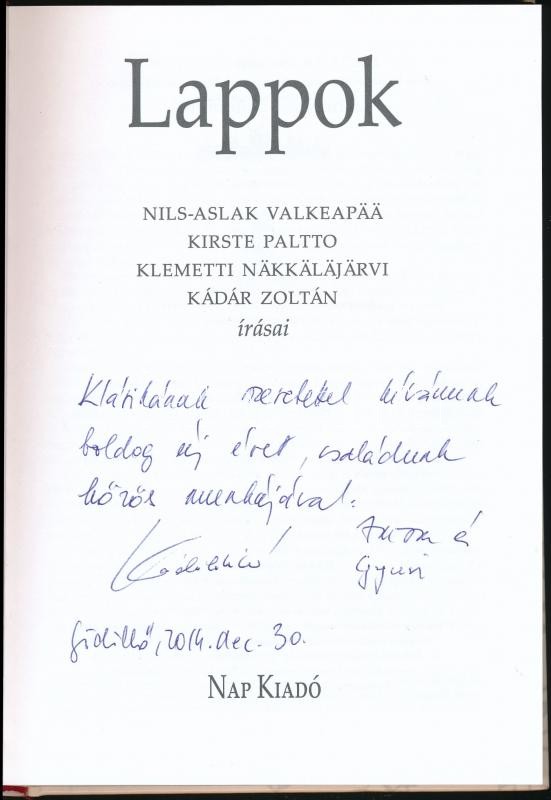 Lappok
NILS-ASLAK VALKEAPÄÄ
KIRSTE PALTTO
KLEMETTI NÄKKÄLÄJÄRVI
KÁDÁR ZOLTÁN
írásai
Klárikának szeretettel kívánunk
boldog új évet, családunk
közös munkájával:
és
Gyuri
2014. dec. 30.
NAP KIADÓ